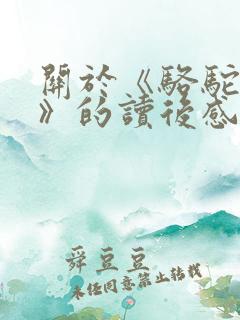 關於《駱駝
》的讀後感
舜豆豆
未經同意禁止轉載